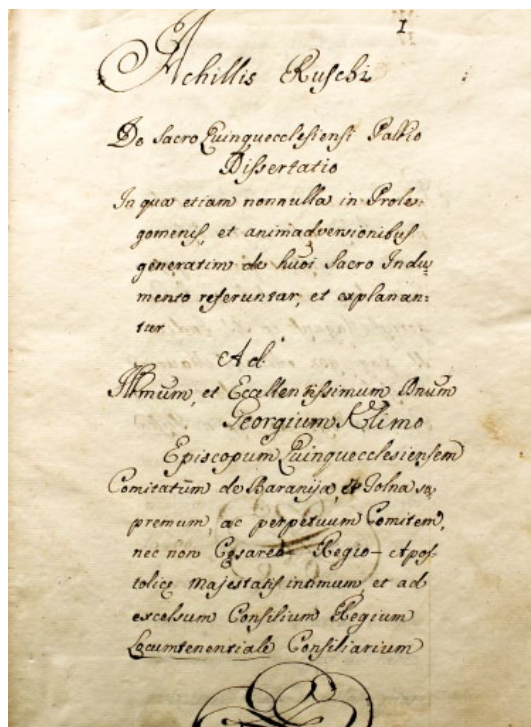 1
Achillis Ruschi
De Sacro Quinqueecclesiensi Pallio
Dissertatio
In qua etiam nonnulla in Prole-
gomenis, et animadversionibus
generatim de hũoi Sacro Indu-
mento referuntur, et explanan-
tur
Ad
Illmum, et Eccellentissimum Dnum
Georgium Klimo
Episcopum Quinqueecclesiensem
Comitatũm de Baranija, et Tolna su
premum, ac perpetuum Comitem,
nec non Cęsareo- Regio- Apos-
tolicę Majestatis intimum et ad
excelsum Consilium Regium
Locumtenentiale Consiliarium